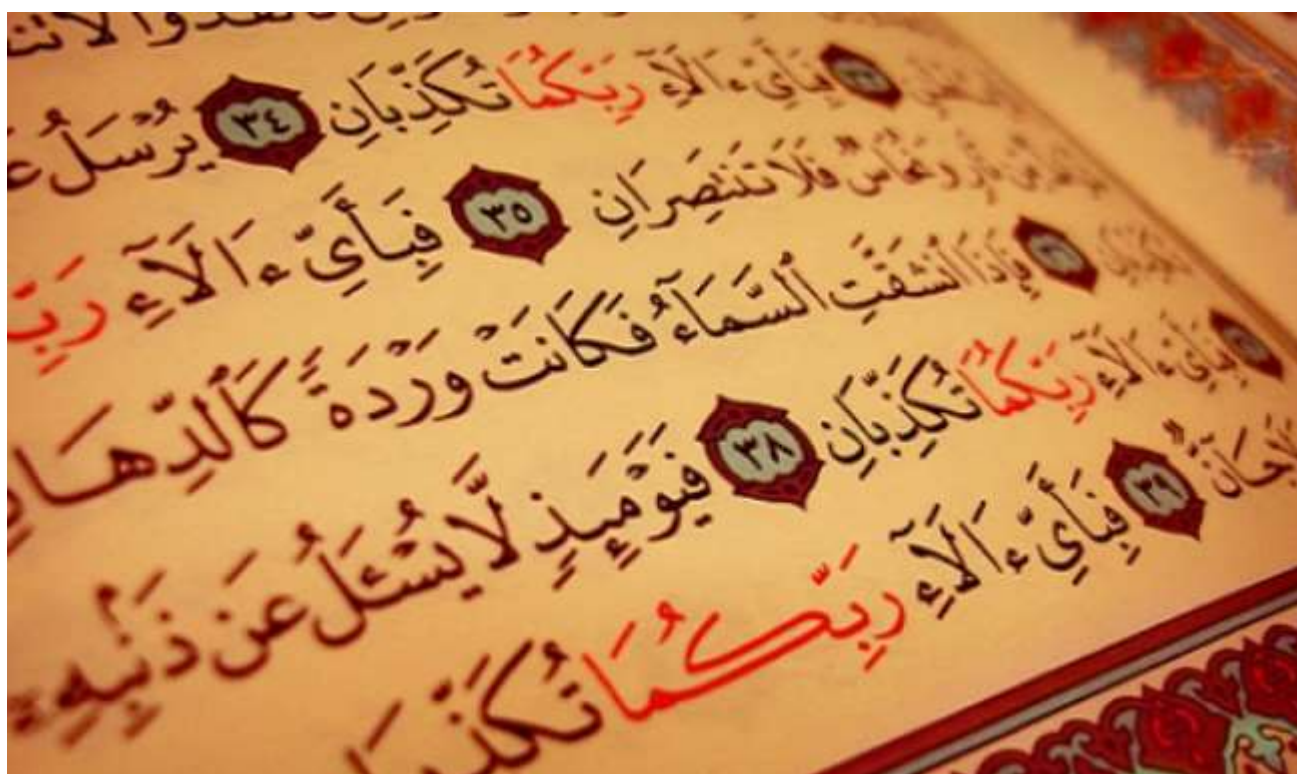 فَبِأَيِّ ءَالَآءِ رَبِّكُمَا تُكَذِّبَانِ ٣٤ يُرْسَلُ
نَّارٍ وَنُحَاسٌ فَلَا تَنتَصِرَانِ ٣٥ فَبِأَيِّ ءَالَآءِ رَبِّ
تُكَذِّبَانِ ٣٦ فَإِذَا ٱنشَقَّتِ ٱلسَّمَآءُ فَكَانَتْ وَرْدَةً كَٱلدِّهَا
فَبِأَيِّ ءَالَآءِ رَبِّكُمَا تُكَذِّبَانِ ٣٨ فَيَوْمَئِذٍ لَّا يُسْـَٔلُ عَن ذَنۢبِهِۦٓ
جَآنٌّ ٣٩ فَبِأَيِّ ءَالَآءِ رَبِّكُمَا تُكَذِّبَا